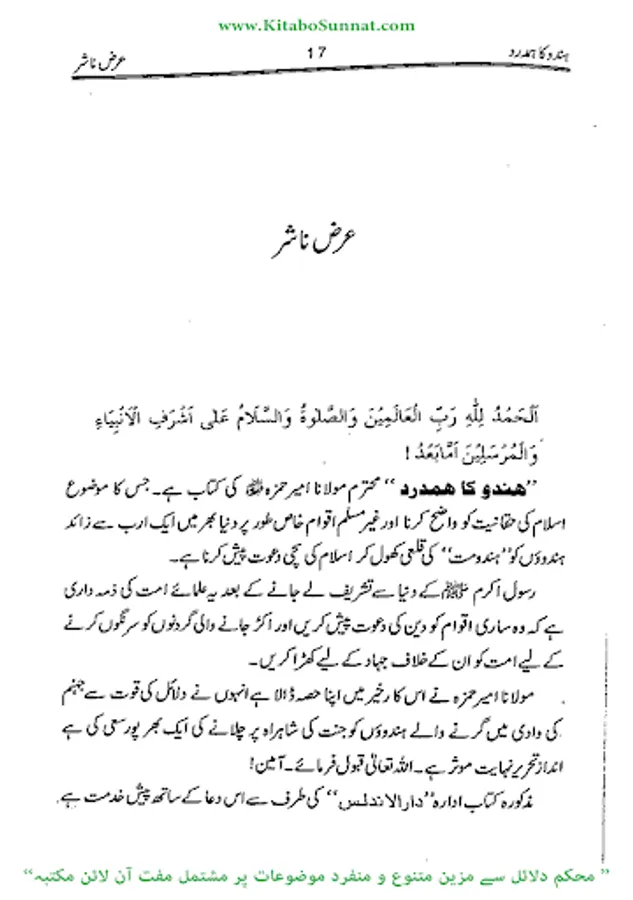 www.KitaboSunnat.com
ہندو کا ہمدرد 17 عرض ناشر
عرض ناشر
اَلْحَمْدُ لِلّٰهِ رَبِّ الْعَالَمِيْنَ وَالصَّلٰوةُ وَالسَّلَامُ عَلٰى اَشْرَفِ الْاَنْبِيَاءِ
وَالْمُرْسَلِيْنَ اَمَّا بَعْدُ !
”ہندو کا ہمدرد“ محترم مولانا امیر حمزہ ﷾ کی کتاب ہے۔ جس کا موضوع
اسلام کی حقانیت کو واضح کرنا اور غیر مسلم اقوام خاص طور پر دنیا بھر میں ایک ارب سے زائد
ہندوؤں کو ”ہندومت“ کی قلعی کھول کر اسلام کی سچی دعوت پیش کرنا ہے۔
رسول اکرم ﷺ کے دنیا سے تشریف لے جانے کے بعد یہ علمائے امت کی ذمہ داری
ہے کہ وہ ساری اقوام کو دین کی دعوت پیش کریں اور اکڑ جانے والی گردنوں کو سرنگوں کرنے
کے لیے امت کو ان کے خلاف جہاد کے لیے کھڑا کریں۔
مولانا امیر حمزہ نے اس کار خیر میں اپنا حصہ ڈالا ہے انہوں نے دلائل کی قوت سے جہنم
کی وادی میں گرنے والے ہندوؤں کو جنت کی شاہراہ پر چلانے کی ایک بھر پور سعی کی ہے
انداز تحریر نہایت موثر ہے۔ اللہ تعالیٰ قبول فرمائے۔ آمین!
مذکورہ کتاب ادارہ ”دارالاندلس“ کی طرف سے اس دعا کے ساتھ پیش خدمت ہے
”محکم دلائل سے مزین متنوع و منفرد موضوعات پر مشتمل مفت آن لائن مکتبہ“